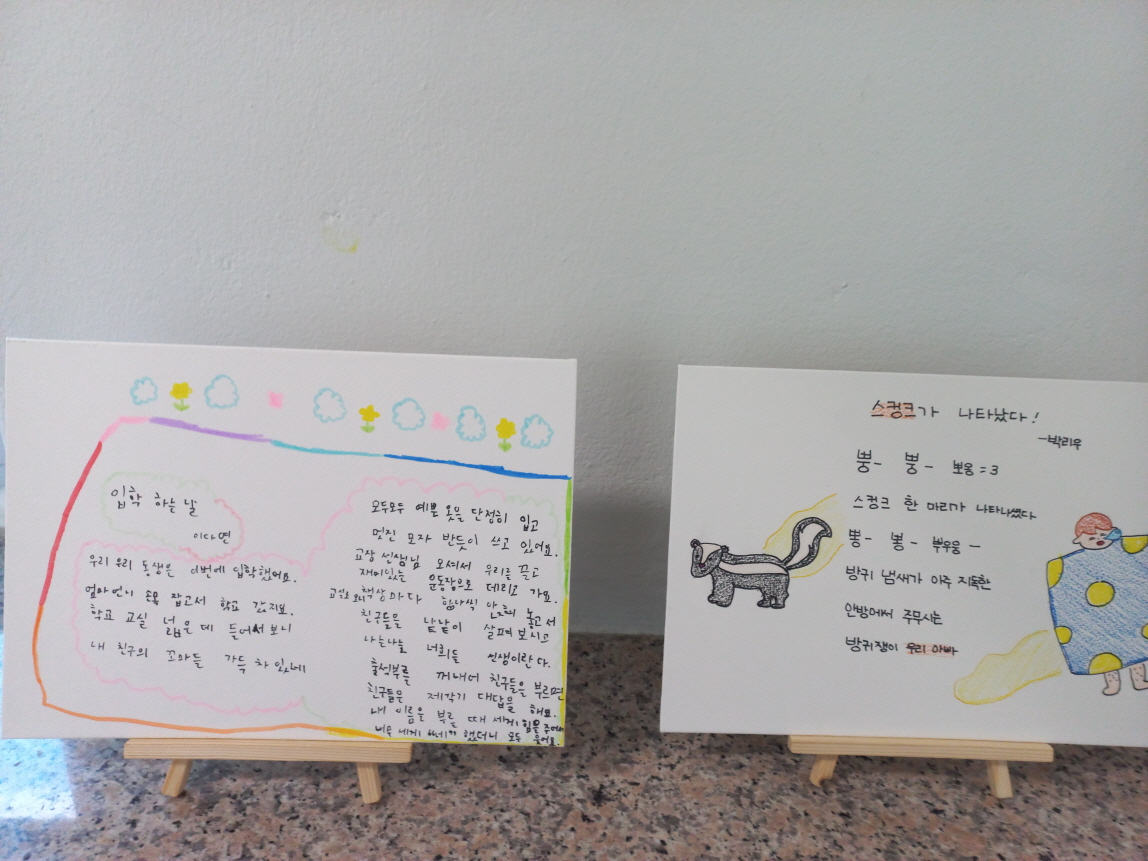 입학 하는 날
이다면
우리 우리 동생은 이번에 입학했어요.
엄마언니 손목 잡고서 학교 갔지요.
학교 교실 넓은 데 들어서 보니
내 친구의 꼬마들 가득 차 있네
모두모두 예쁜 옷을 단정히 입고
멋진 모자 반듯이 쓰고 있어요.
교장 선생님 오셔서 우리를 끌고
재미있는 운동장으로 데리고 가요.
책상마다 앉혀 놓고서
친구들을 낱낱이 살펴보시고
나는나는 너희들 선생이란다.
출석부를 꺼내어 친구들을 부르면
친구들은 제각기 대답을 해요.
내 이름을 부를 때 세게 힘을 주어
너무 세게 했더니 모두 웃어요.
스컹크가 나타났다!
-박리우
뿡- 뿡- 뽀옹=3
스컹크 한 마리가 나타나셨다
뽕- 뽕- 뿌우웅-
방귀 냄새가 아주 지독한
안방에서 주무시는
방귀쟁이 우리 아빠